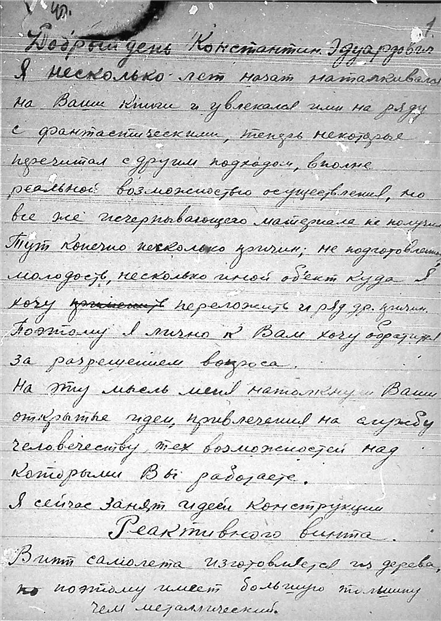 1.
Добрый день Константин Эдуардович
Я несколько лет начат наталкивался
на Ваши книги и увлекался ими на ряду
с фантастическими, теперь некоторые
перечитал с другим подходом, вполне
реальной возможностью осуществления, но
все же исчерпывающего материала не получил
Тут конечно несколько причин; не подготовлен
молодость, несколько иной об'ект куда я
хочу переложить и ряд др. причин.
Поэтому я лично к Вам хочу обратится
за разрешением вопроса.
На эту мысль меня натолкнули Ваши
открытые идеи, привлечения на службу
человечеству тех возможностей над
которыми Вы работаете.
Я сейчас занят идеей конструкции
Реактивного винта.
Винт самолета изготовляется из дерева,
но поэтому имеет большую толщину
чем металлический